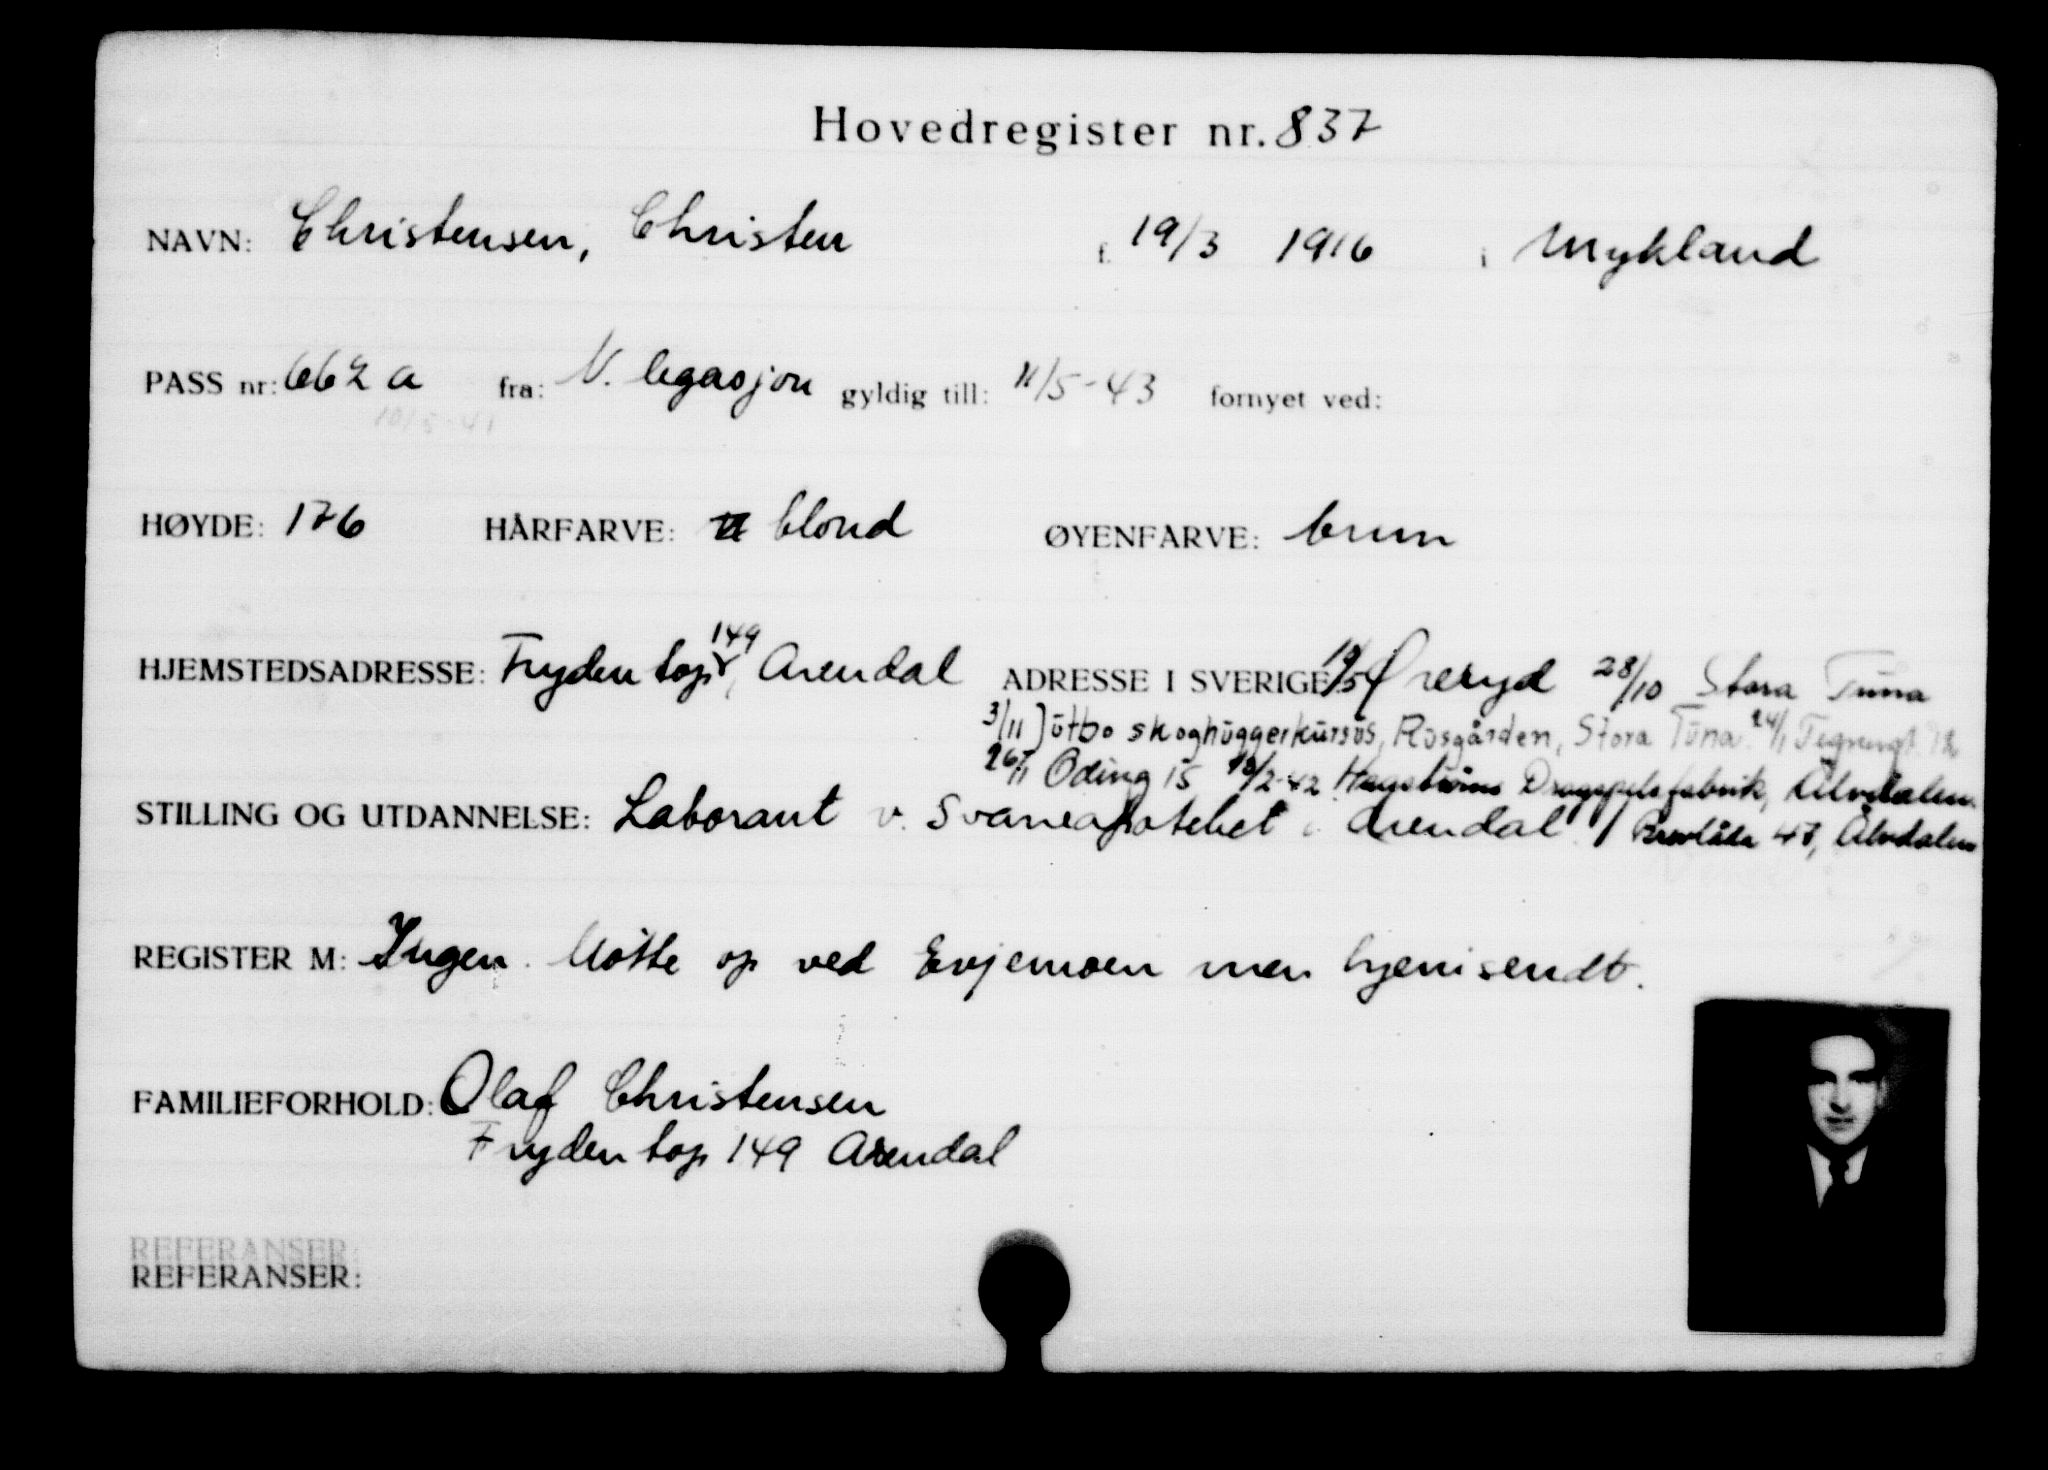 Hovedregister nr. 837
NAVN: Christensen, Christen f. 19/3 1916 i Mykland
PASS nr: 662 a fra: N. legasjon gyldig till: 11/5-43 fornyet ved:
10/5-41
HØYDE: 176 HÅRFARVE: blond ØYENFARVE: brun
HJEMSTEDSADRESSE: Frydentop 149, Arendal ADRESSE I SVERIGE: Øreryd 28/10 Stora Tuna
3/11 Jutbo skoghuggerkursus, Rusgården, Stora Tuna. 24/1
Öding 15 Hagströms Dragspelsfabrik, Älvdalen
STILLING OG UTDANNELSE: Laborant v. Svaneapoteket i Arendal / Brevlåda 47, Älvdalen
REGISTER M: Ingen. Møtte op ved Evjemoen men hjemsendt.
FAMILIEFORHOLD: Olaf Christensen
Frydentop 149 Arendal
REFERANSER:
REFERANSER: